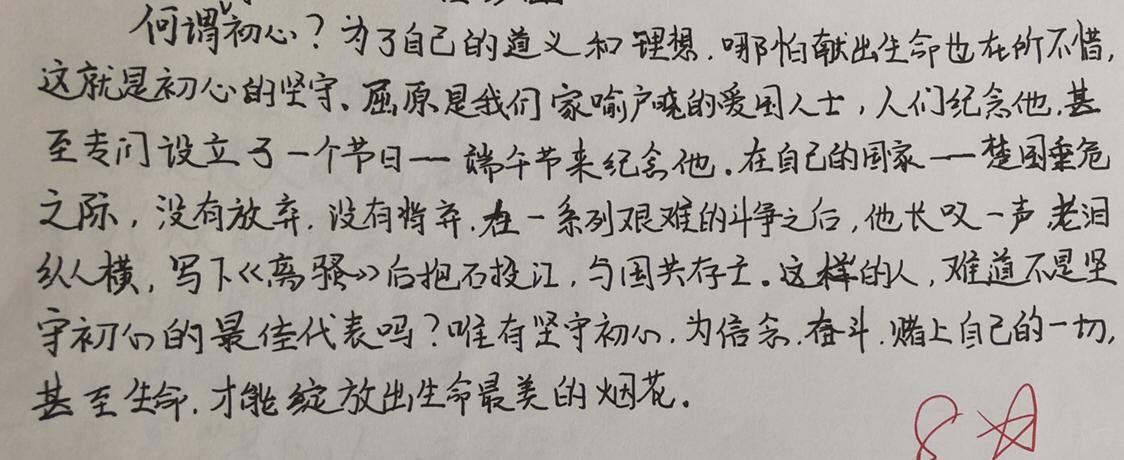 何谓初心？为了自己的道义和理想，哪怕献出生命也在所不惜，
这就是初心的坚守。屈原是我们家喻户晓的爱国人士，人们纪念他，甚
至专门设立了一个节日——端午节来纪念他。在自己的国家——楚国垂危
之际，没有放弃，没有背弃，在一系列艰难的斗争之后，他长叹一声，老泪
纵横，写下《离骚》后抱石投江，与国共存亡。这样的人，难道不是坚
守初心的最佳代表吗？唯有坚守初心，为信念，奋斗，赌上自己的一切，
甚至生命，才能绽放出生命最美的烟花。